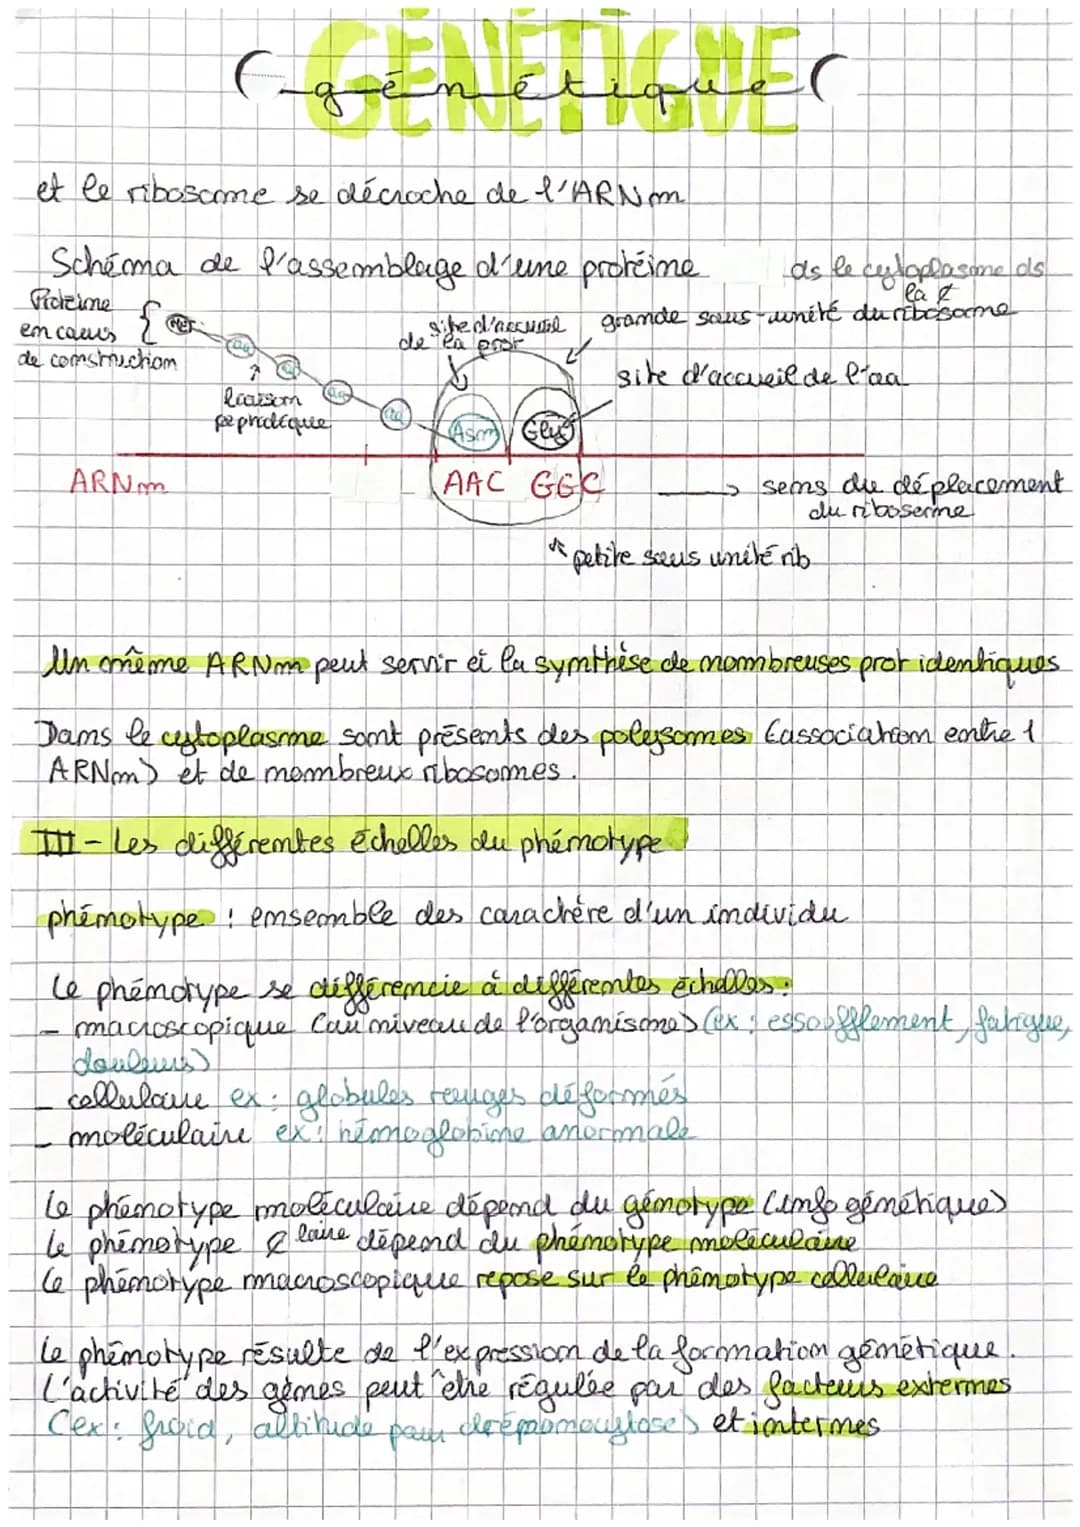 GÉNÉTIQUE
génétique
et le ribosome se décroche de l'ARNm
Schéma de l'assemblage d'une protéine
ds le cytoplasme ds
la ¢
Protéine
en cours
de construction
MET
aa
aa
aa
aa
liaison
peptidique
site d'accueil
de la prot
grande sous-unité du ribosome
site d'accueil de l'aa
Asn
Gly
ARNm
AAC GGC
sens du déplacement
du ribosome
petite sous unité rib
Un même ARNm peut servir à la synthèse de nombreuses prot identiques
Dans le cytoplasme sont présents des polysomes (association entre 1
ARNm) et de nombreux ribosomes.
III - Les différentes échelles du phénotype
phénotype : ensemble des caractère d'un individu
Le phénotype se différencie à différentes échelles :
- macroscopique (au niveau de l'organisme) (ex : essoufflement, fatigue,
douleurs)
- cellulaire ex : globules rouges déformés
- moléculaire ex : hémoglobine anormale
Le phénotype moléculaire dépend du génotype (info génétique)
Le phénotype ¢ laire dépend du phénotype moléculaire
Le phénotype macroscopique repose sur le phénotype cellulaire
Le phénotype résulte de l'expression de la formation génétique.
L'activité des gènes peut être régulée par des facteurs externes
(ex : froid, altitude pour drépanocytose) et internes